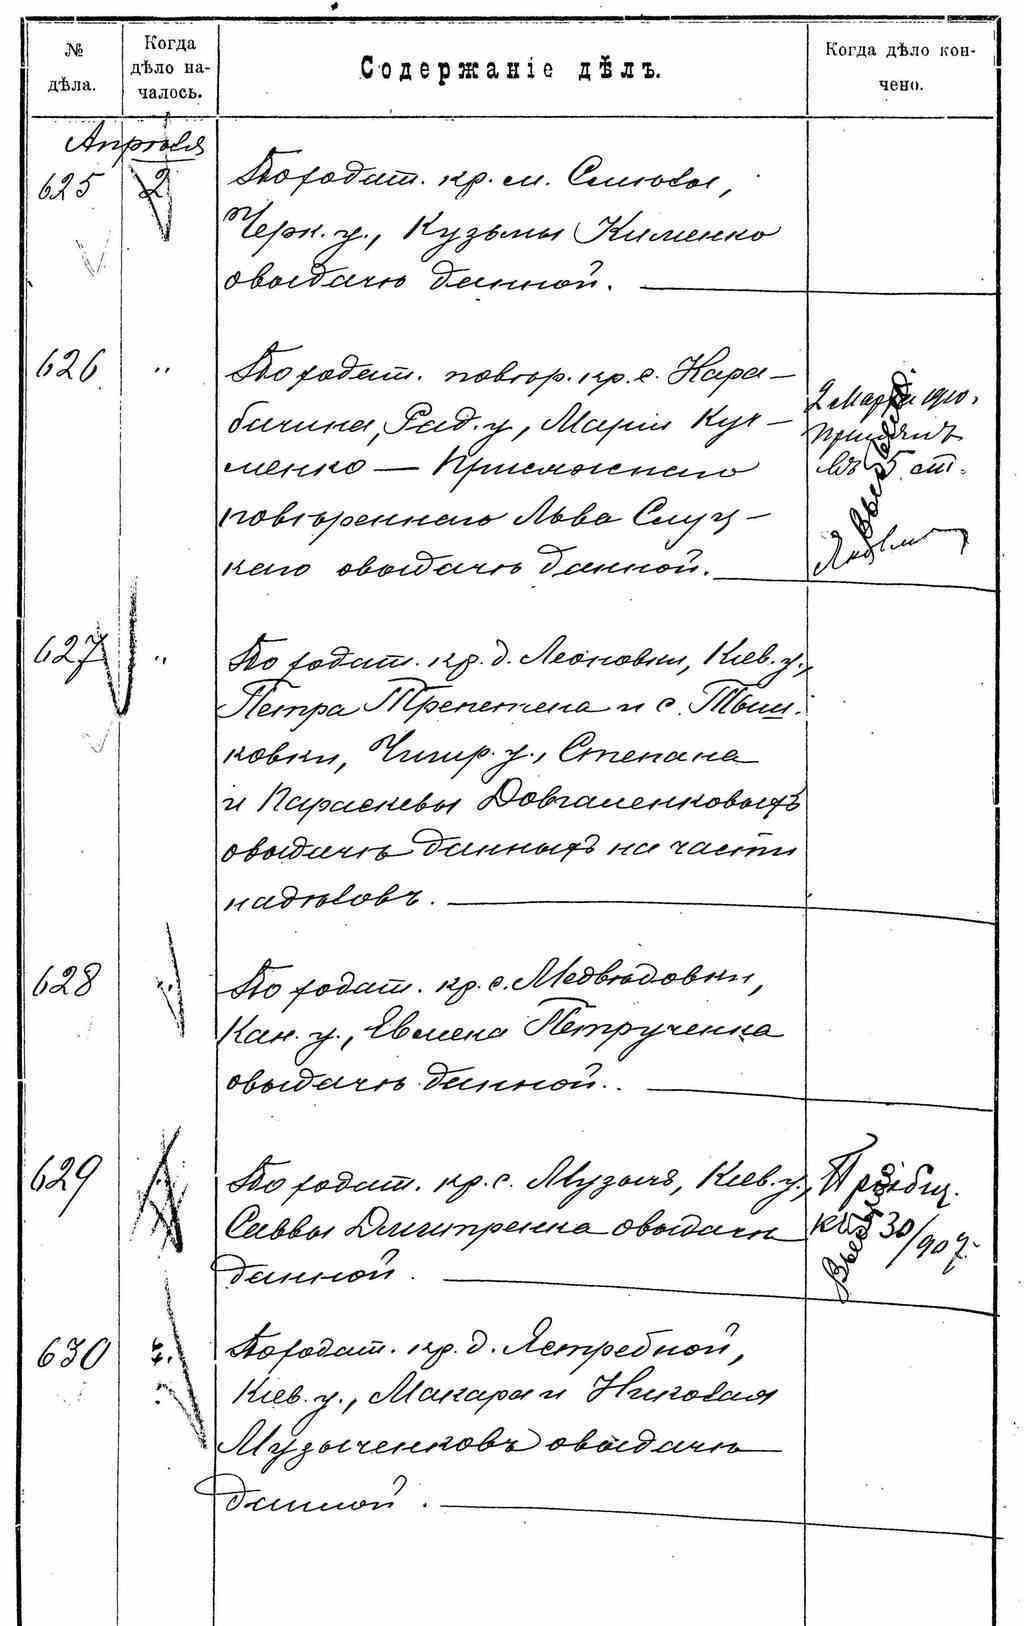 № дѣла.
Когда дѣло на-
чалось.
Содержаніе дѣлъ.
Когда дѣло кон-
чено.
Апрѣля
625 2 По ходат. кр. м. Смѣлы,
Черк. у., Кузьмы Клименко
о выдачѣ данной.
626 " По ходат. повѣр. кр. с. Кара-
бачина, Рад. у., Маріи Кух-
менко — Присяжнаго
повѣреннаго Льва Слуц-
каго о выдачѣ данной.
2 Марта 1910.
5 ст.
627 " По ходат. кр. д. Леоновки, Кіев. у.,
Петра Трепетена и с. Тыш-
ковки, Чигир. у., Степана
и Параскевы Довгаленковыхъ
о выдачѣ данныхъ на части
надѣловъ.
628 " По ходат. кр. с. Медвѣдовки,
Кан. у., Евмена Петрученка
о выдачѣ данной.
629 По ходат. кр. с. Музыче, Кіев. у.,
Саввы Дмитренка о выдачѣ
данной.
къ 30/907.
630 По ходат. кр. д. Ястребной,
Кіев. у., Макара и Николая
Музыченковъ о выдачѣ
данной.